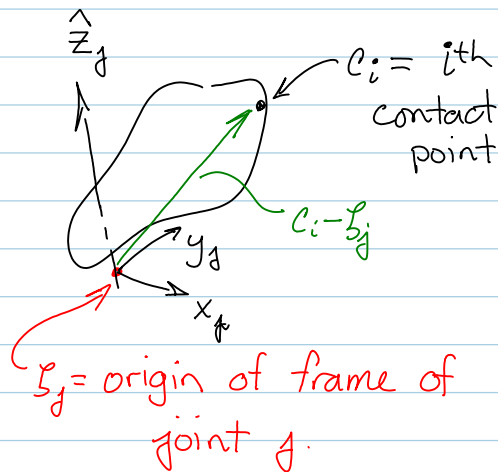 ẑ_j
c_i = ith
contact
point
c_i - ζ_j
y_j
x_j
ζ_j = origin of frame of
joint j.